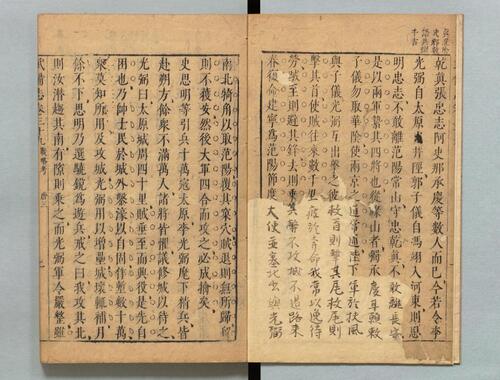 乾真張忠志阿史那承慶等數人而已今若令李
光弼自太原出井陘郭子儀自馮翊入河東則思
明忠志不敢離范陽常山守忠乾真不敢離長安
是以兩軍縶其四將也從祿山者獨承慶耳願敕
子儀勿取華陰使兩京之道常通陛下軍於扶風
與子儀光弼互出擊之彼救首則擊其尾救尾則
擊其首使賊往來數千里疲於奔命我常以逸待
勞賊至則避其鋒去則乘其弊不攻城不遏路來
春復命建寧為范陽節度大使並塞北出與光弼
南北犄角以取范陽覆其巢穴賊退則無所歸留
則不獲安然後大軍四合而攻之必成擒矣
史思明等引兵十萬寇太原李光弼麾下精兵皆
赴朔方餘衆不滿萬人諸將皆懼議修城以待之
光弼曰太原城周四十里賊垂至而興役是先自
困也乃帥士民於城外鑿濠以自固作墼數十萬
衆莫知所用及攻城光弼用以增壘城壞輒補月
餘不下思明乃選驍銳為遊兵戒之曰我攻其北
則汝潛趨其南有隙則乘之而光弼軍令嚴整雖
武備志卷三十九 戰略考 唐三